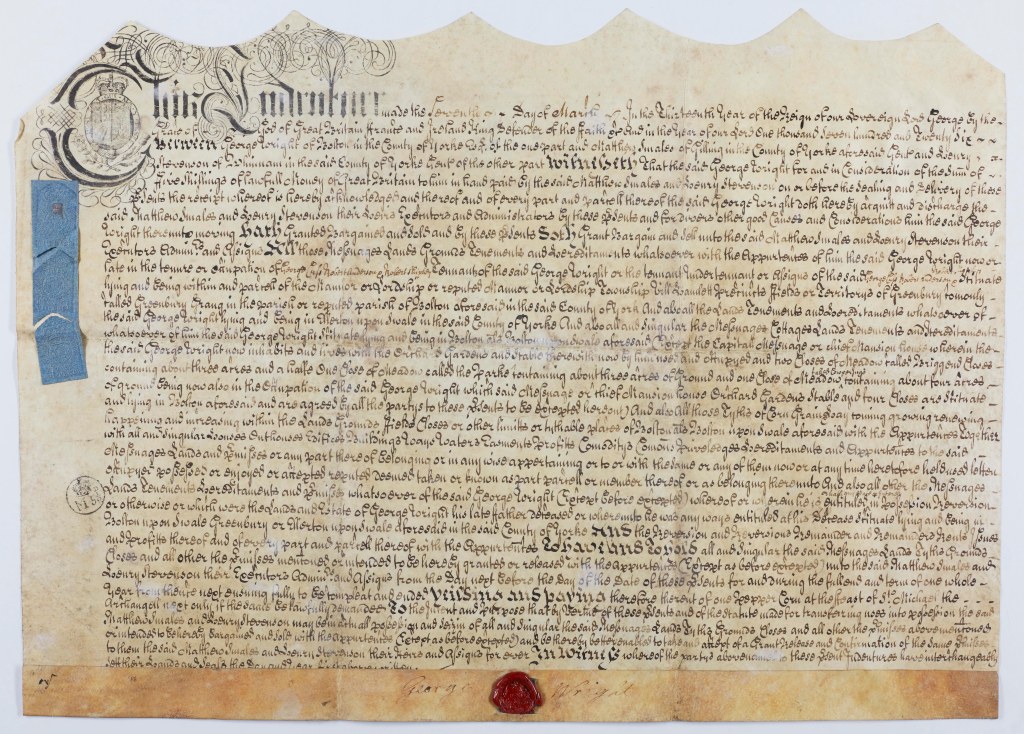 This Indenture made the Seventh Day of March In the Thirteenth Year of the Reign of our Sovereign Lord George by the
Grace of God of Great Britain France and Ireland King Defender of the Faith &c And in the Year of our Lord One thousand Seven hundred and Twenty Six
Between George Wright of Bolton in the County of Yorke Esqr. of the one part and Matthew Smales of Gilling in the County of Yorke aforesaid Gent and Henry
Stevenson of in the said County of Yorke Gent of the other part Witnesseth That the said George Wright for and in Consideration of the Sum of
Five Shillings of lawfull Money of Great Britain to him in hand paid by the said Matthew Smales and Henry Stevenson on or before the Sealing and Delivery of these
Presents the receipt whereof is hereby acknowledged and thereof and of every part and parcell thereof the said George Wright doth hereby acquitt and discharge the
said Matthew Smales and Henry Stevenson their Heirs Executors and Administrators by these Presents and for divers other good Causes and Considerations him the said George
Wright thereunto moving Hath Granted Bargained and Sold and by these Presents Doth Grant Bargain and Sell unto the said Matthew Smales and Henry Stevenson their
Executors Admin and Assigns All those Messuages Lands Grounds Tenements and Hereditaments whatsoever with the Appurtences of him the said George Wright now or
late in the tenure or occupation of George Tennants of the said George Wright or the tennant Undertennant or Assigns of the said Situate
lying and being within and parcell of the Mannor or Lordship or reputed Mannor or Lordship Township Vill Hamlett Precincts Fields or Territorys of Greenbury comonly
called Greenbury Grang in the parish or reputed parish of Bolton aforesaid in the said County of York And also all the Lands Tenements and Hereditaments whatsoever of
the said George Wright lying and being in Ellerton upon Swale in the said County of Yorke And also all and Singular the Messuages Cottages Lands Tenements and Hereditaments
whatsoever of him the said George Wright Situate lying and being in Bolton als Bolton upon Swale aforesaid Except the Capitall Messuage or chief Mansion house wherein the
the said George Wright now inhabits and lives with the Orchard Gardens and Stable therewith now by him used and occupyed and two Closes of Meadow called Briggend Closes
containing about three acres and a halfe One Close of Meadow called the Parke containing about three acres of Ground and one Close of Meadow containing about four acres
of ground being now also in the Occupation of the said George Wright which said Messuage or chief Mansion house Orchard Gardens Stable and four Closes are Situate
and lying in Bolton aforesaid and are agreed by all the partys to these Presents to be excepted hereout And also All those Tyths of Corn Grain Hay coming growing renewing
happening and increasing within the Lands Grounds Fields Closes or other limitts or tythable places of Bolton als Bolton upon Swale aforesaid with the Appurtences Together
with all and Singular houses Outhouses Edifices Buildings Ways Waters Easments Profitts Comoditys Comons Priveleges Hereditaments and Appurtences to the said
Messuages Lands and Premisses or any part thereof belonging or in any wise appertaining or to or with the same or any of them now or at any time heretofore held used letten
occupyed possessed or enjoyed or accepted reputed deemed taken or known as part parcell or member thereof or as belonging thereunto And also all other the Messuages
Lands Tenements Hereditaments and Premisses whatsoever of the said George Wright (Except before excepted) whereof or wherein he is entituled in possession Reversion
or otherwise or which were the Lands and Estate of George Wright his late Father deceased or whereunto he was any ways entituled at his Decease Situate lying and being in
Bolton upon Swale Greenbury or Ellerton upon Swale aforesaid in the said County of Yorke And the Reversion and Reversions Remainder and Remainders Rents Issues
and Profitts thereof and of every part and parcell thereof with the Appurtences To have and to hold all and Singular the said Messuages Lands Tyths Grounds
Closes and all other the Premisses mentioned or intended to be hereby granted or released with the appurtences (Except as before excepted) unto the said Matthew Smales and
Henry Stevenson their Executors Admin and Assigns from the Day next before the Day of the Date of these Presents for and during the full end and term of one whole
Year from thence next ensuing fully to be compleat and ended Yeilding and paying therefore the rent of one Pepper Corn at the feast of St. Michael the
Archangel next only if the same be lawfully demanded To the Intent and purpose that by Vertue of these Presents and of the Statute made for transferring uses into possession the said
Matthew Smales and Henry Stevenson may be in actuall possession and Seizin of all and Singular the said Messuages Lands Tyths Grounds Closes and all other the Premisses abovementioned
or intended to be hereby bargained and sold with the appurtences (Except as before excepted) and be hereby better enabled to take and accept of a Grant Release and Confirmation of the same Premisses
to them the said Matthew Smales and Henry Stevenson their Heirs and Assigns for ever In Witness whereof the partys abovenamed to these present Indentures have interchangeably
sett their Hands and Seals the Day and Year
George Wright